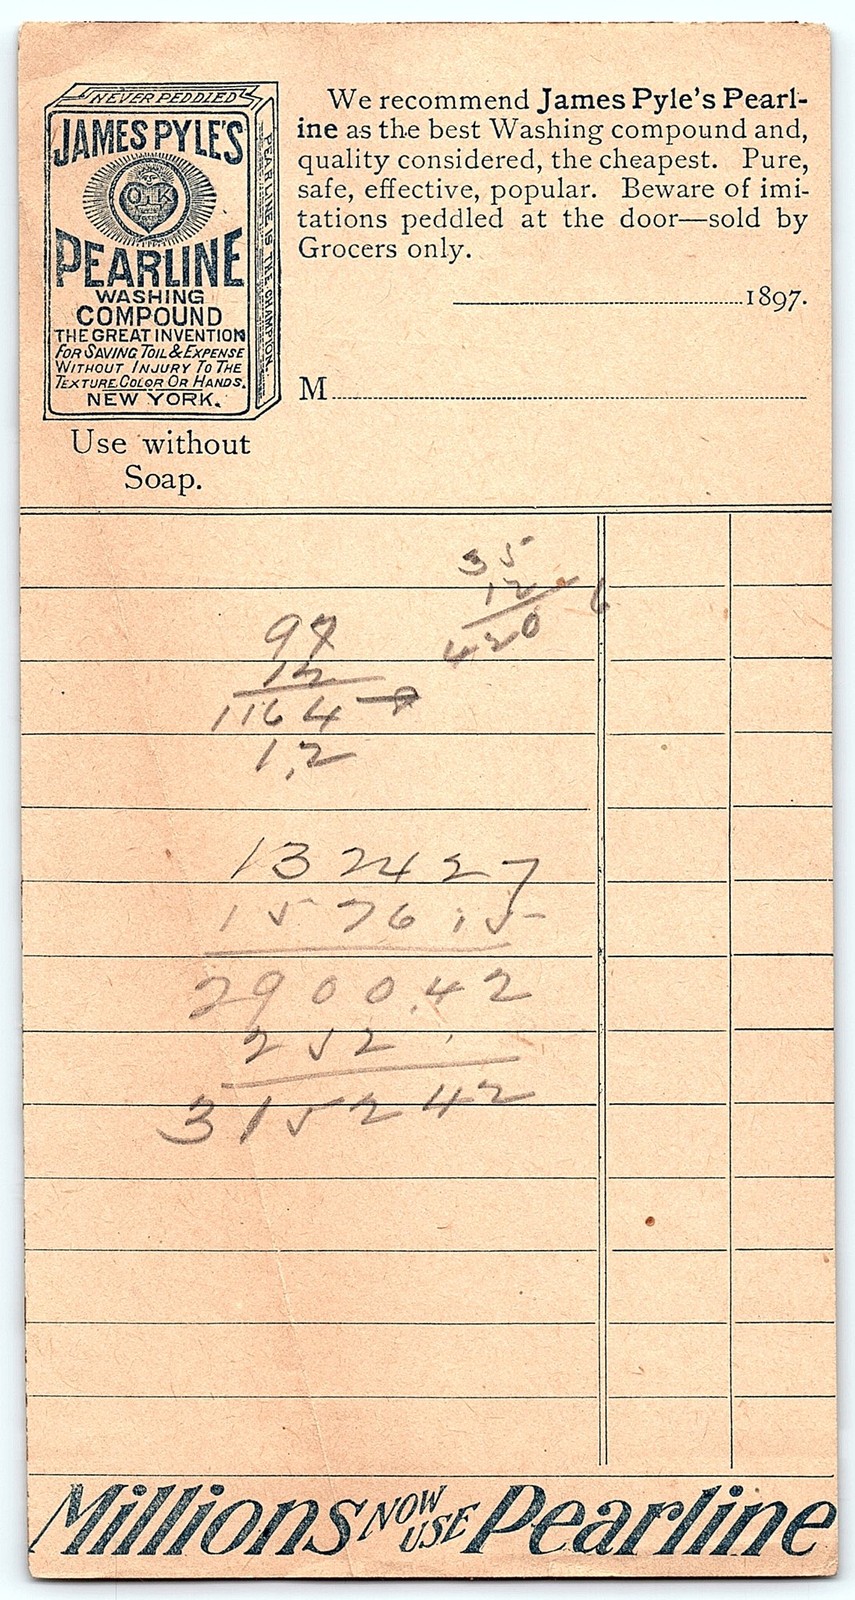 NEVER PEDDLED
JAMES PYLE'S
O.K
PEARLINE
WASHING
COMPOUND
THE GREAT INVENTION
FOR SAVING TOIL & EXPENSE
WITHOUT INJURY TO THE
TEXTURE, COLOR OR HANDS.
NEW YORK.
PEARLINE IS THE CHAMPION.
Use without
Soap.
We recommend James Pyle's Pearl-
ine as the best Washing compound and,
quality considered, the cheapest. Pure,
safe, effective, popular. Beware of imi-
tations peddled at the door—sold by
Grocers only.
1897.
M
35
12 6
420
97
12
1164
1,2
132427
157615
290042
252
315242
Millions NOW USE Pearline